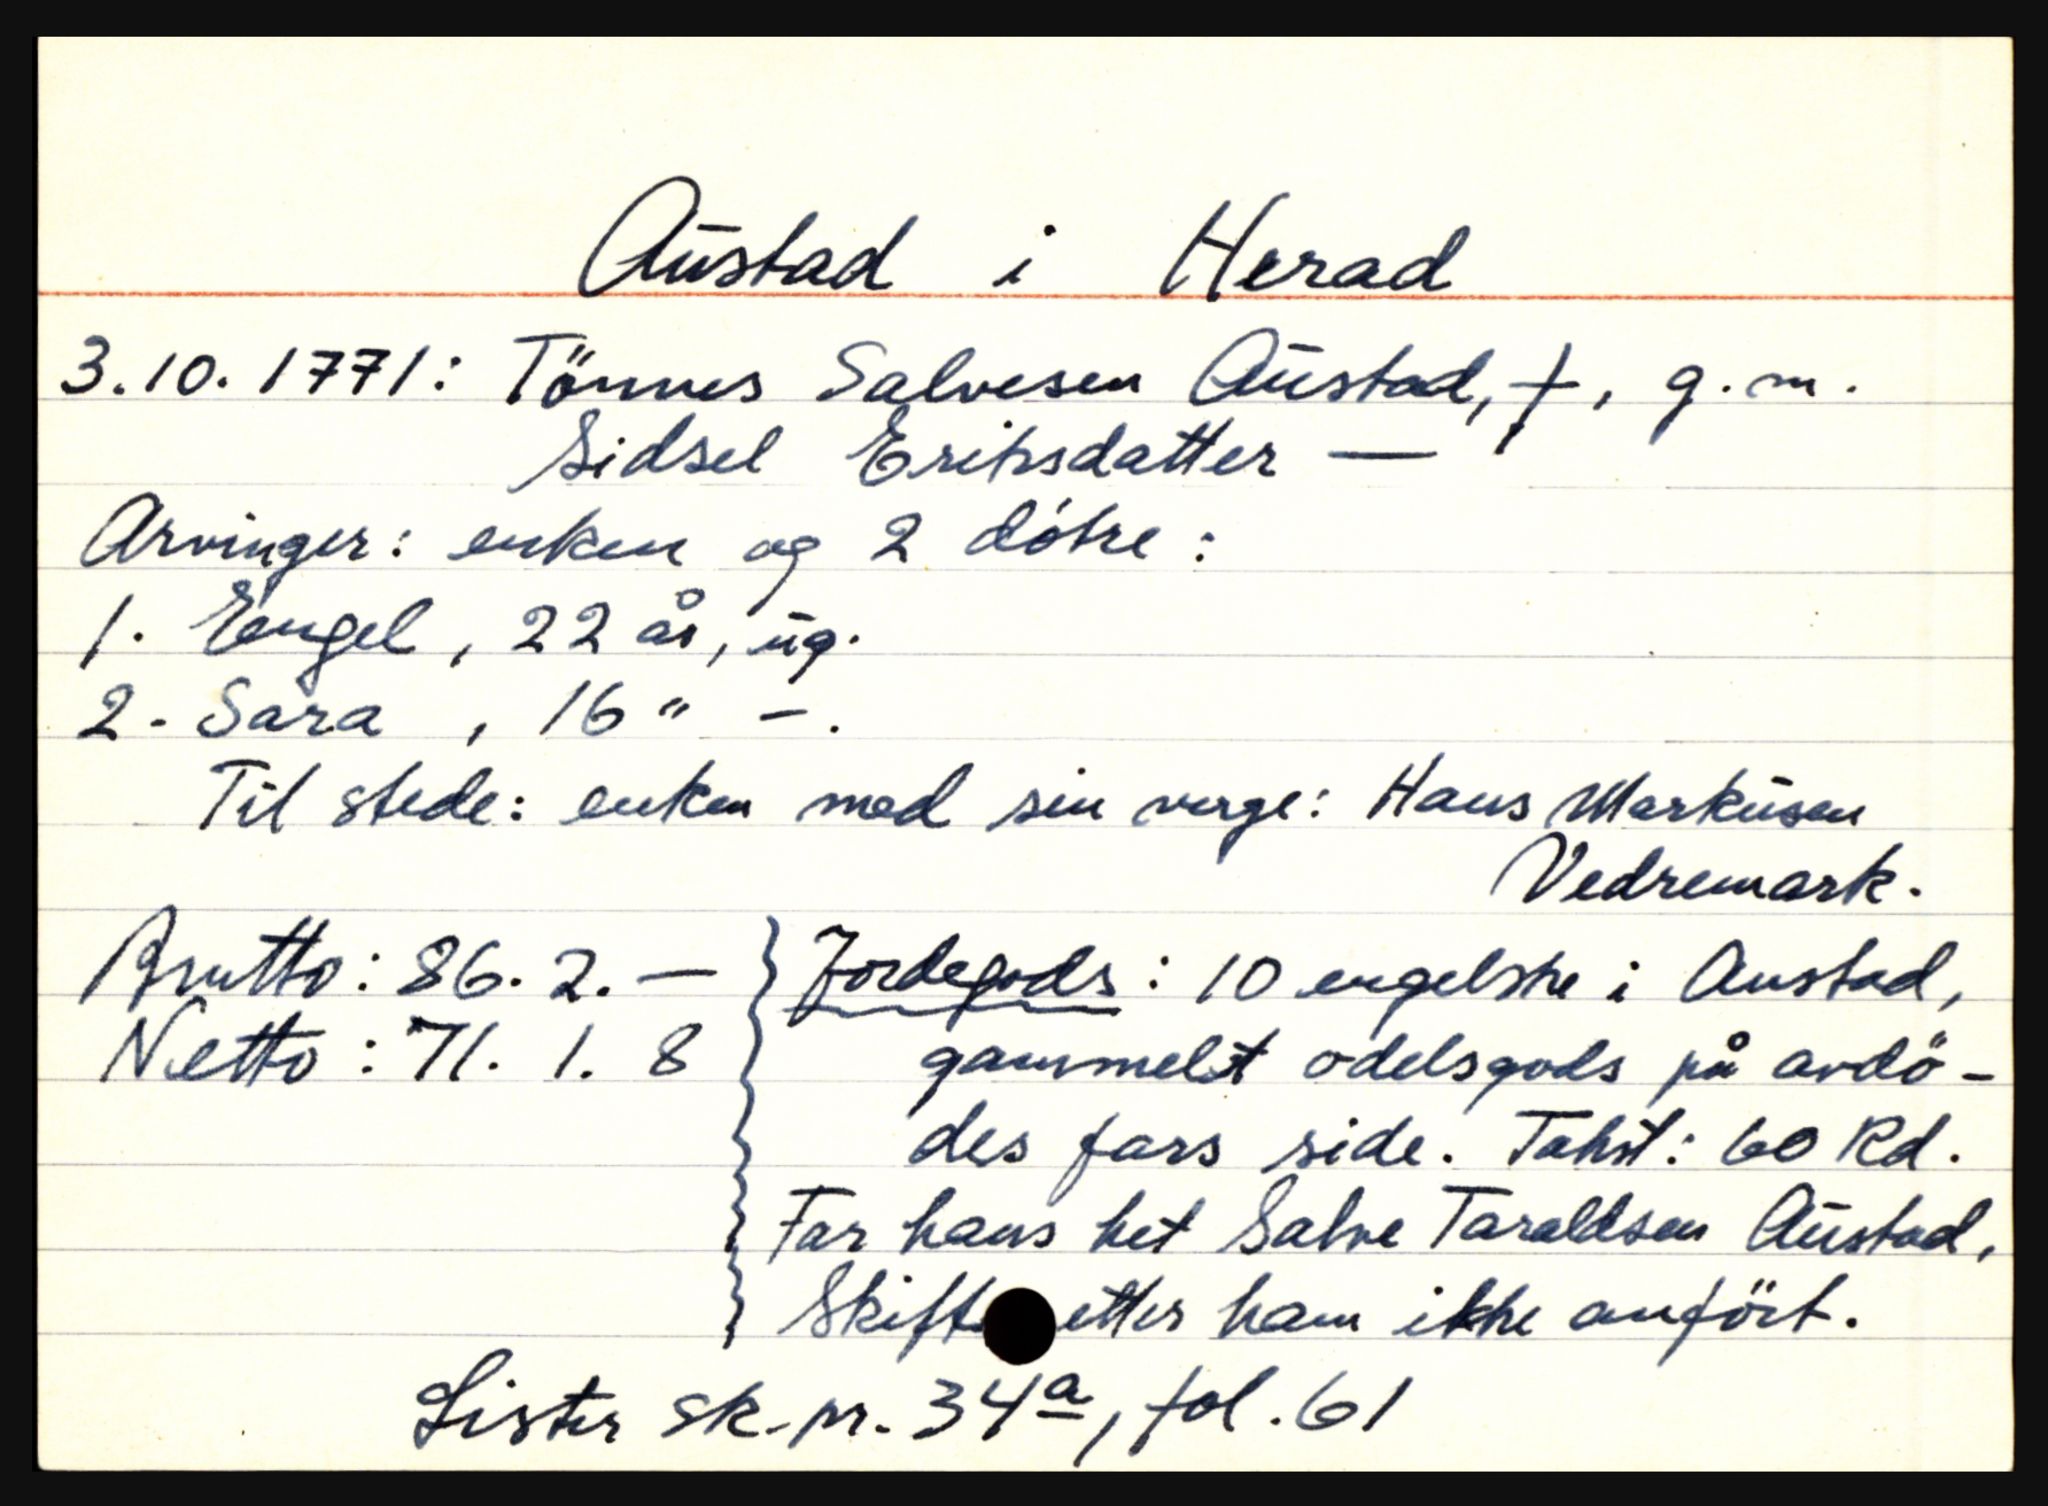 Austad i Herad
3.10.1771: Tönnes Salvesen Austad, †, g.m.
Sidsel Eriksdatter —
Arvinger: enken og 2 döbre:
1. Engel, 22 år, ug.
2. Sara, 16 " -.
Til stede: enken med sin verge: Hans Markusen
Vedremark.
Brutto: 86. 2. —
Netto: 71. 1. 8
Jordegods: 10 engelske i Austad,
gammelt odelsgods på avdö-
des fars side. Takst: 60 Rd.
Far hans het Salve Taraldsen Austad,
Skifte etter ham ikke anfört.
Lister sk.pr. 34a, fol. 61